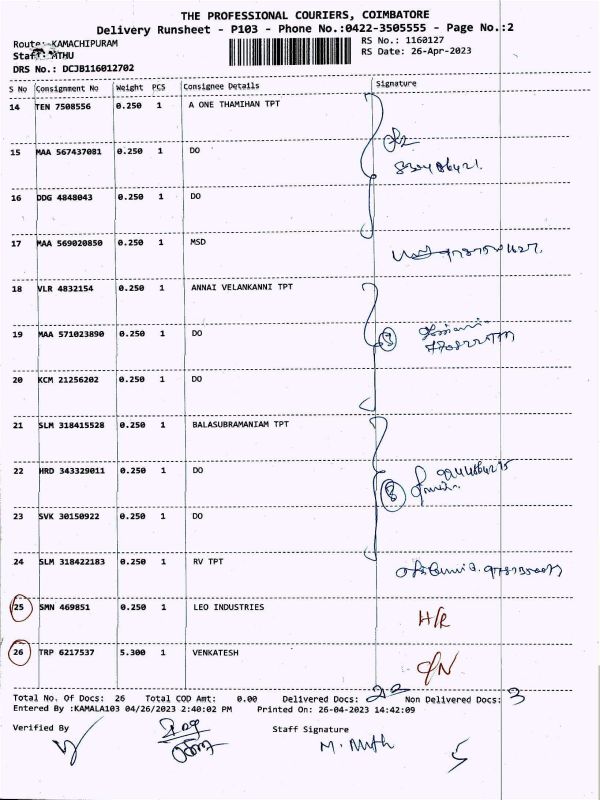 THE PROFESSIONAL COURIERS, COIMBATORE
Delivery Runsheet - P103 - Phone No.:0422-3505555 - Page No.:2
Route: KAMACHIPURAM RS No.: 1160127
Staff: MTHU RS Date: 26-Apr-2023
DRS No.: DCJB116012702
S No Consignment No Weight PCS Consignee Details Signature
14 TEN 7508556 0.250 1 A ONE THAMIHAN TPT
15 MAA 567437081 0.250 1 DO
16 DDG 4848043 0.250 1 DO
17 MAA 569020850 0.250 1 MSD
18 VLR 4832154 0.250 1 ANNAI VELANKANNI TPT
19 MAA 571023890 0.250 1 DO
3
20 KCM 21256202 0.250 1 DO
21 SLM 318415528 0.250 1 BALASUBRAMANIAM TPT
22 HRD 343329011 0.250 1 DO
23 SVK 30150922 0.250 1 DO
24 SLM 318422183 0.250 1 RV TPT
25 SMN 469851 0.250 1 LEO INDUSTRIES
H/R
26 TRP 6217537 5.300 1 VENKATESH
Total No. Of Docs: 26 Total COD Amt: 0.00 Delivered Docs: 22 Non Delivered Docs: 3
Entered By :KAMALA103 04/26/2023 2:40:02 PM Printed On: 26-04-2023 14:42:09
Verified By Staff Signature
M. Muth